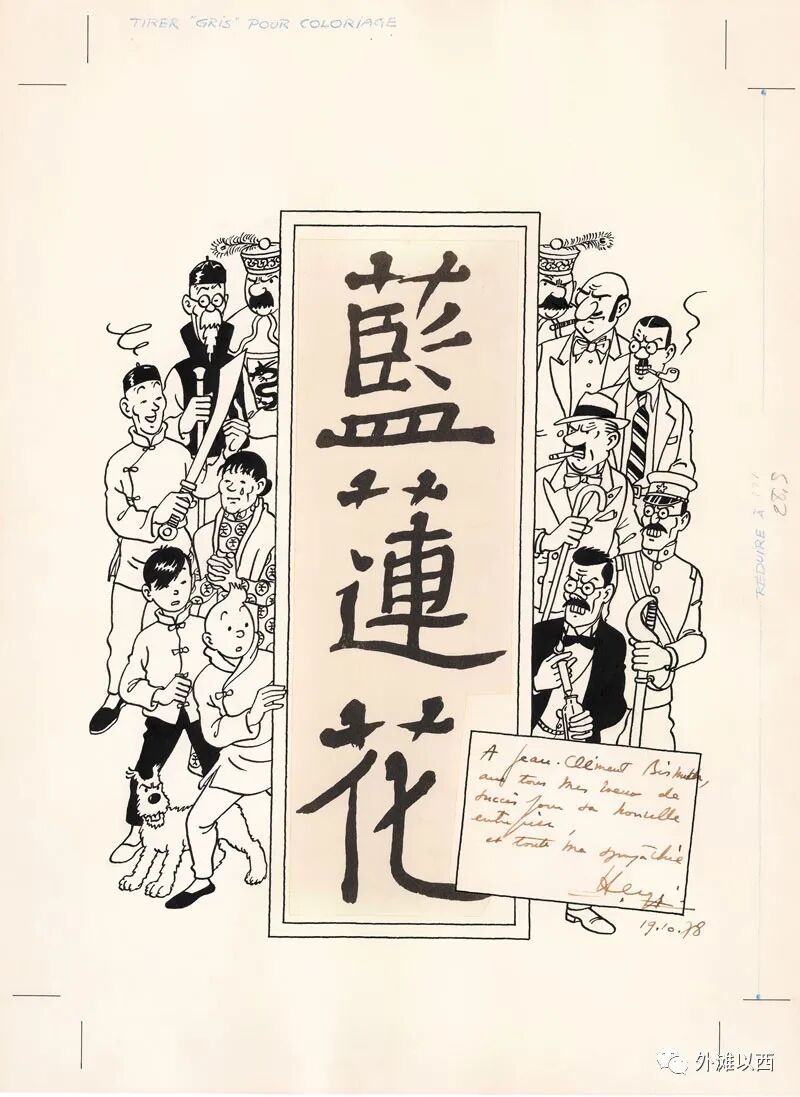 TIRER "GRIS" POUR COLORIAGE
藍
蓮
花
RÉDUIRE À
A Jean-Clément
avec tous mes vœux de
succès pour sa nouvelle
entreprise,
et toute ma sympathie
Hergé
19.10.78
外滩以西